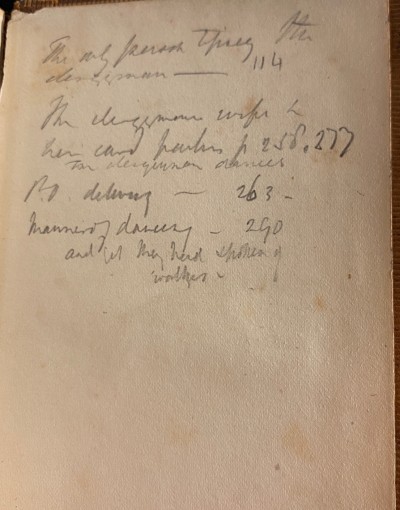 The only person they the
clergyman — 114
The clergymans wife &
her card parties p 258, 277
The clergyman dances
P.O. delivery — 263 –
Manner of dancing – 290
and yet they had spoken of
waltzes –